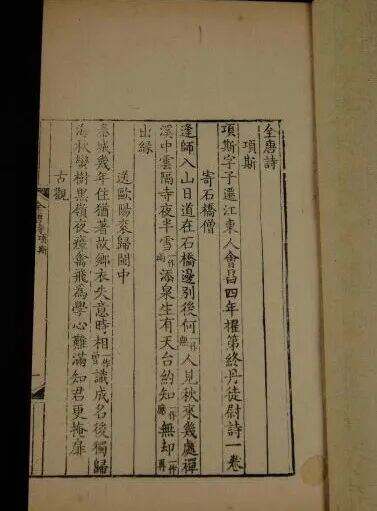 全唐詩
項斯
項斯字子遷江東人會昌四年擢第終丹徒尉詩一卷
寄石橋僧
逢師入山日道在石橋邊別後何一作無人見秋來幾處禪
溪中雲隔寺夜半雪一作雨添泉生有天台約知一作應無却一作再
出緣
送歐陽袞歸閩中
秦城幾年住猶著故鄉衣失意時相一作皆識成名後獨歸
海秋蠻樹黑嶺夜瘴禽飛為學心難滿知君更掩扉
古觀
項斯